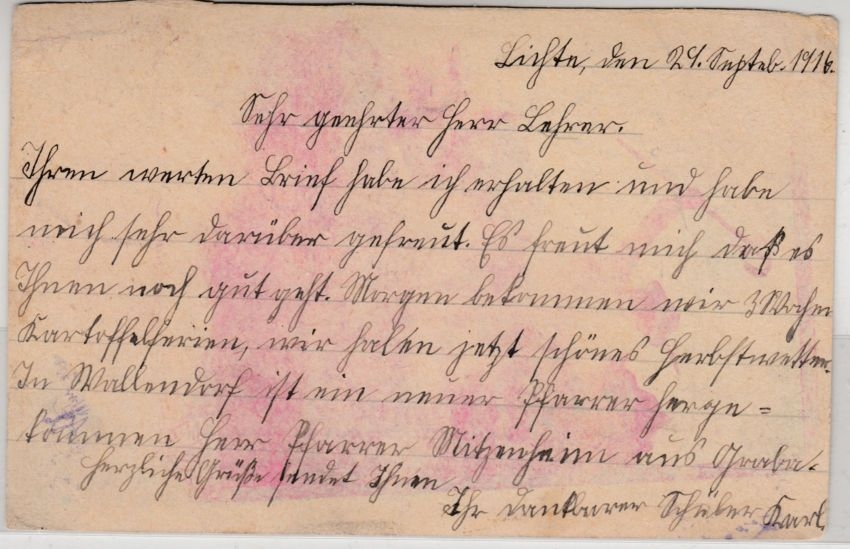 Lichte, den 24. Septeb. 1916.
Sehr geehrter Herr Lehrer.
Ihren werten Brief habe ich erhalten und habe
mich sehr darüber gefreut. Es freut mich daß es
Ihnen noch gut geht. Morgen bekommen wir 3 Wochen
Kartoffelferien, wir haben jetzt schönes Herbstwetter.
In Wallendorf ist ein neuer Pfarrer herge=
kommen Herr Pfarrer Mitzenheim aus Graba.
Herzliche Grüße sendet Ihnen
Ihr dankbarer Schüler Karl.